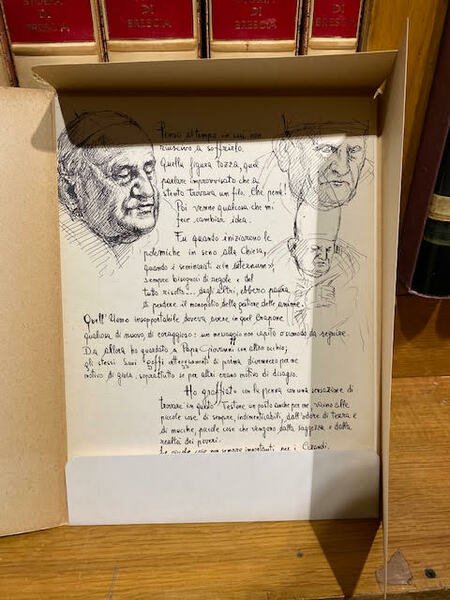 STORIA DI BRESCIA
STORIA DI BRESCIA
STORIA DI BRESCIA
STORIA DI BRESCIA
Penso al tempo in cui non
riuscivo a soffrirlo.
Quella figura tozza, quel
parlare improvvisato che a
stento trovava un filo. Che pena!
Poi venne qualcosa che mi
fece cambiar idea.
Fu quando iniziarono le
polemiche in seno alla Chiesa,
quando i seminaristi «in aeternum»,
sempre bisognosi di regole e del
tutto risolto... dagli altri, ebbero paura
di perdere il monopolio della gestione delle anime.
Quell'Uomo insopportabile doveva avere in quel
qualcosa di nuovo, di coraggioso: un messaggio non capito o scomodo da seguire.
Da allora ho guardato a Papa Giovanni con altro occhio;
gli stessi suoi goffi atteggiamenti di prima divennero per me
motivo di gioia, soprattutto se per altri erano motivo di disagio.
Ho graffiato con la penna con una sensazione di
trovare in questo Testone un posto anche per me, vicino alle
piccole cose di sempre, indimenticabili, dall'odore di terra e
di mucche, piccole cose che vengono dalla saggezza e dalla
realtà dei poveri.
Le piccole cose non sempre importanti per i Grandi.